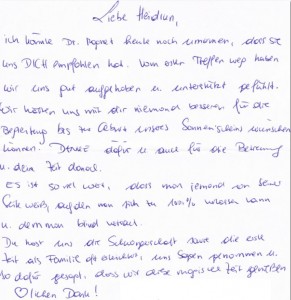 Liebe Heidrun,
ich könnte Dr. Popret heute noch umarmen, dass sie
uns DICH empfohlen hat. Vom ersten Treffen weg haben
wir uns gut aufgehoben u. unterstützt gefühlt.
Wir hätten uns mit dir niemand besseren für die
Begleitung bis zur Geburt unseres Sonnenscheins wünschen
können. Danke dafür u. auch für die Betreuung
u. dem Zeit danach.
Es ist so viel wert, dass man jemand an seiner
Seite weiß, auf den man sich zu 100% verlassen kann
u. dem man blind vertraut.
Du hast uns die Schwangerschaft sowie die erste
Zeit als Familie oft erleichtert, uns Sorgen genommen u.
so dafür gesorgt, dass wir diese magische Zeit genießen
lichen Dank!